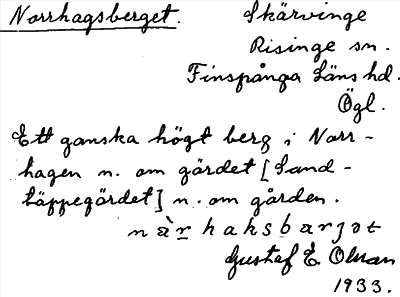 Norrhagsberget. Skärvinge
Risinge sn.
Finspånga Läns hd.
Ögl.
Ett ganska högt berg i Norr-
hagen n. om gärdet [Sand-
täppegärdet] n. om gården.
nàr̲haksbarjət
Gustaf E. Olsson
1933.